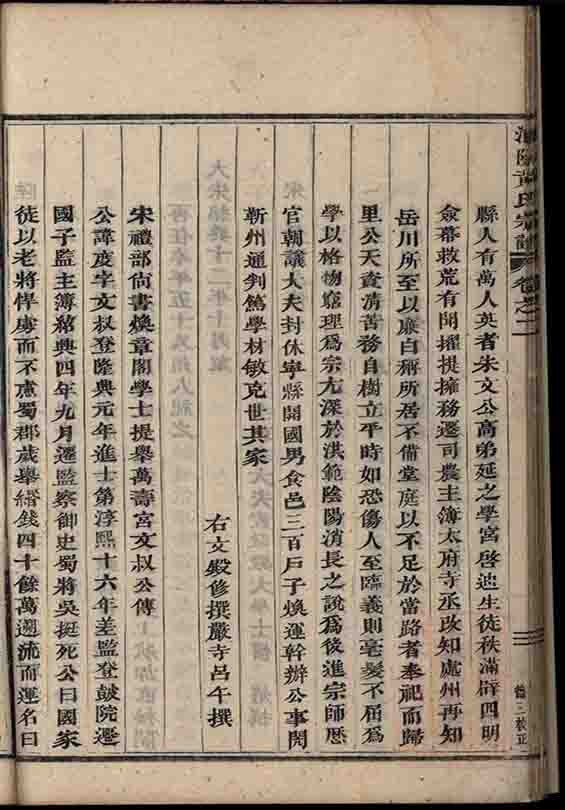 縣人有萬人英者朱文公高弟延之學宮啓迪生徒秩滿辟四明
僉幕救荒有聞擢提𣙜務遷司農主簿太府寺丞改知處州再知
岳川所至以廉白稱所居不備堂庭以不足於當路者奉祀而歸
里公天資清苦務自樹立平時如恐傷人至臨義則毫髮不屈爲
學以格物窮理爲宗尤深於洪範陰陽消長之說爲後進宗師歷
官朝議大夫封休寧縣開國男食邑三百戶子煥運幹辦公事閱
蘄州通判篤學材敏克世其家
右文殿修撰嚴寺呂午撰
宋禮部尙書煥章閣學士提舉萬壽宮文叔公傳
公諱度字文叔登隆興元年進士第淳熙十六年差監登鼓院遷
國子監主簿紹興四年九月遷監察御史蜀將吳挺死公曰國家
徒以老將悍虜而不慮蜀郡歲舉緡錢四十餘萬遡流而運名曰
氏宗譜
卷之二
德三校正